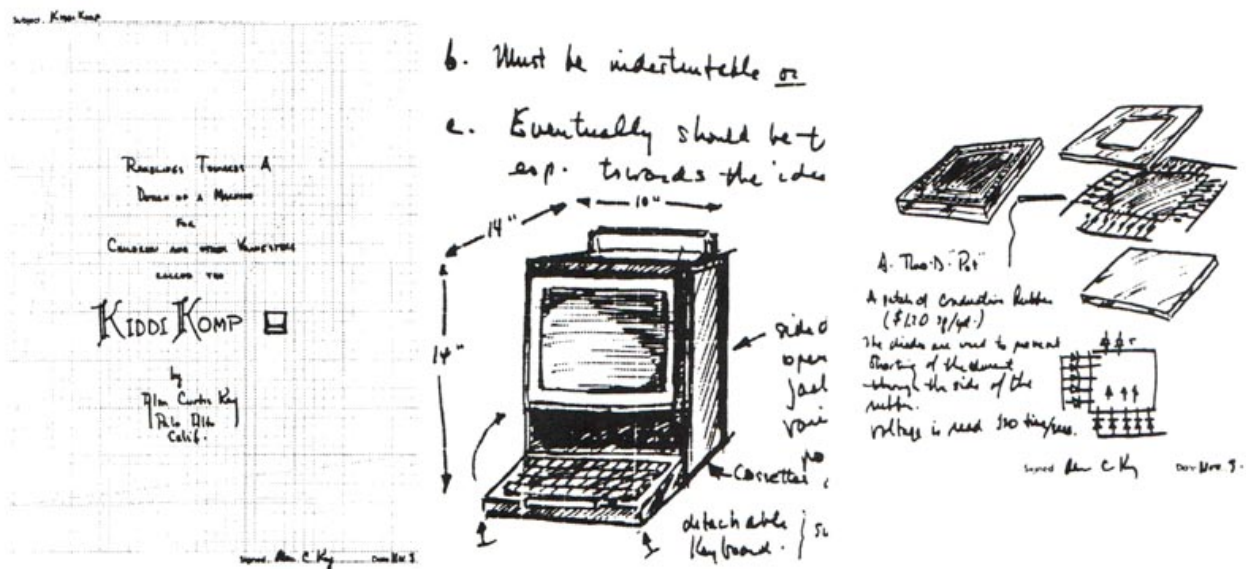 Subject. Kiddi Komp
Ramblings Towards A
Design of a Machine
For
Children and other Visionaries
called the
KIDDI KOMP
by
Alan Curtis Kay
Palo Alto
Calif.
Signed Alan C Kay Date Nov. 9
b. Must be indestructable or
c. Eventually should be t
esp. towards the idea
14"
10"
14"
side o
open
jack
vari
po
Cassettes
detachable
Keyboard.
A. Two-D-"Pot"
A patch of conductive Rubber
($1.20 sq/yd.)
The diodes are used to prevent
Shorting of the current
through the side of the
rubber.
voltage is read times/sec.
Signed Alan C Kay Date Nov. 9.